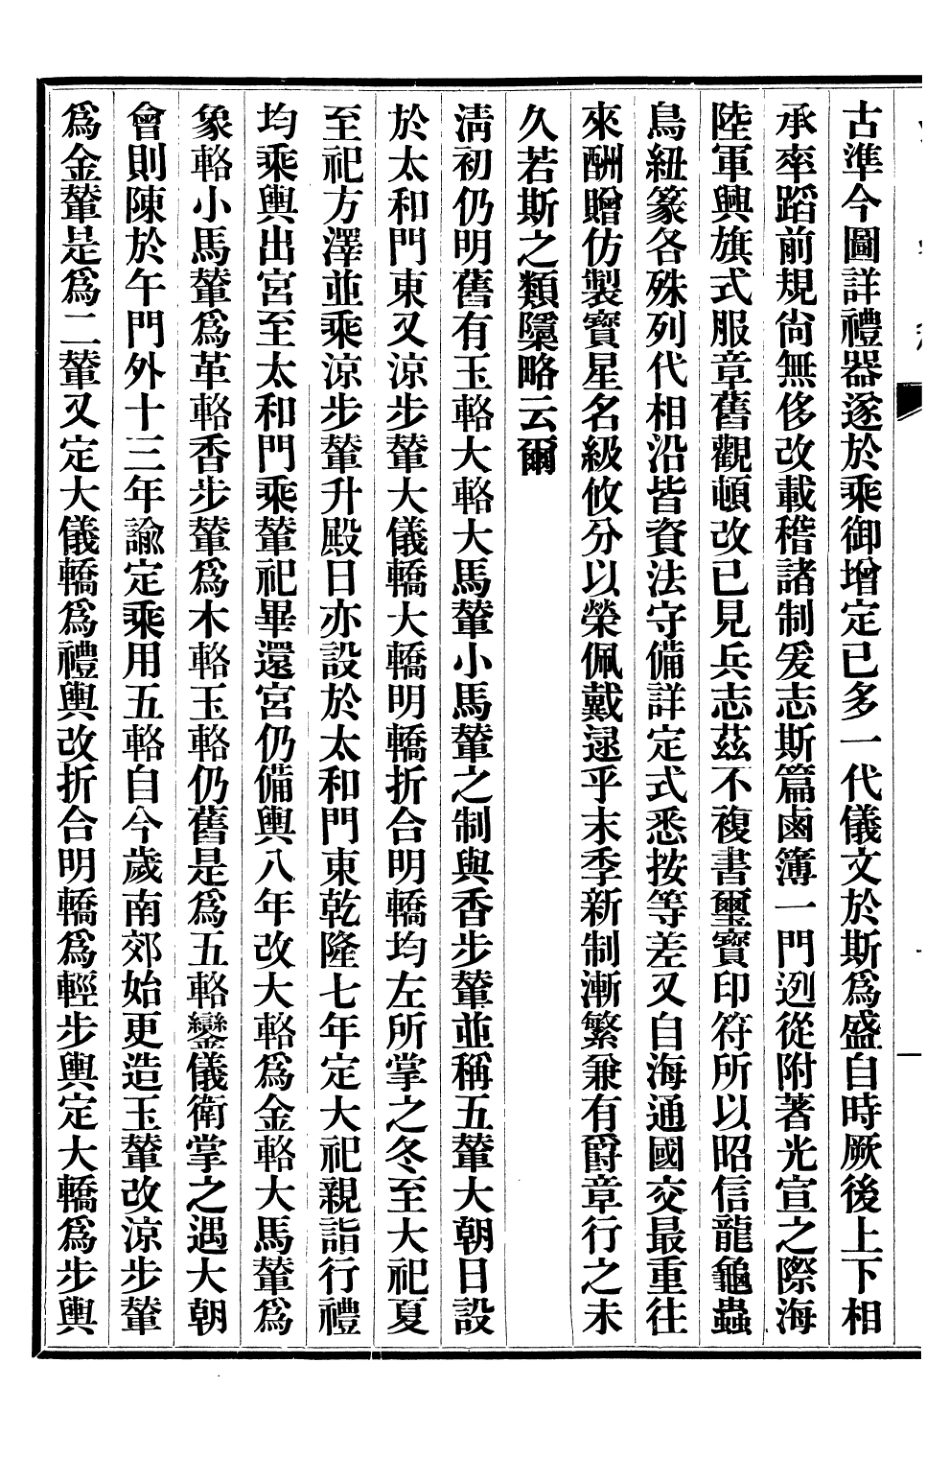 古準今圖詳禮器遂於乘御增定已多一代儀文於斯爲盛自時厥後上下相
承率蹈前規尙無侈改載稽諸制爰志斯篇鹵簿一門迾從附著光宣之際海
陸軍興旗式服章舊觀頓改已見兵志茲不複書璽寶印符所以昭信龍龜蟲
鳥紐篆各殊列代相沿皆資法守備詳定式悉按等差又自海通國交最重往
來酬贈仿製寶星名級攸分以榮佩戴逯乎末季新制漸繁兼有爵章行之未
久若斯之類隱略云爾
淸初仍明舊有玉輅大輅大馬輦小馬輦之制與香步輦並稱五輦大朝日設
於太和門東又涼步輦大儀轎大轎明轎折合明轎均左所掌之冬至大祀夏
至祀方澤並乘涼步輦升殿日亦設於太和門東乾隆七年定大祀親詣行禮
均乘輿出宮至太和門乘輦祀畢還宮仍備輿八年改大輅爲金輅大馬輦爲
象輅小馬輦爲革輅香步輦爲木輅玉輅仍舊是爲五輅鑾儀衛掌之遇大朝
會則陳於午門外十三年諭定乘用五輅自今歲南郊始更造玉輦改涼步輦
爲金輦是爲二輦又定大儀轎爲禮輿改折合明轎爲輕步輿定大轎爲步輿